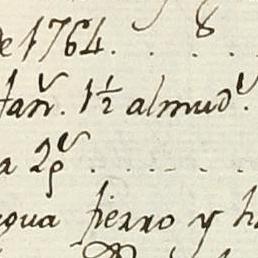 de 1764. . 8 . .
tañ. 1½ almud.
a 2
agua fierro y h